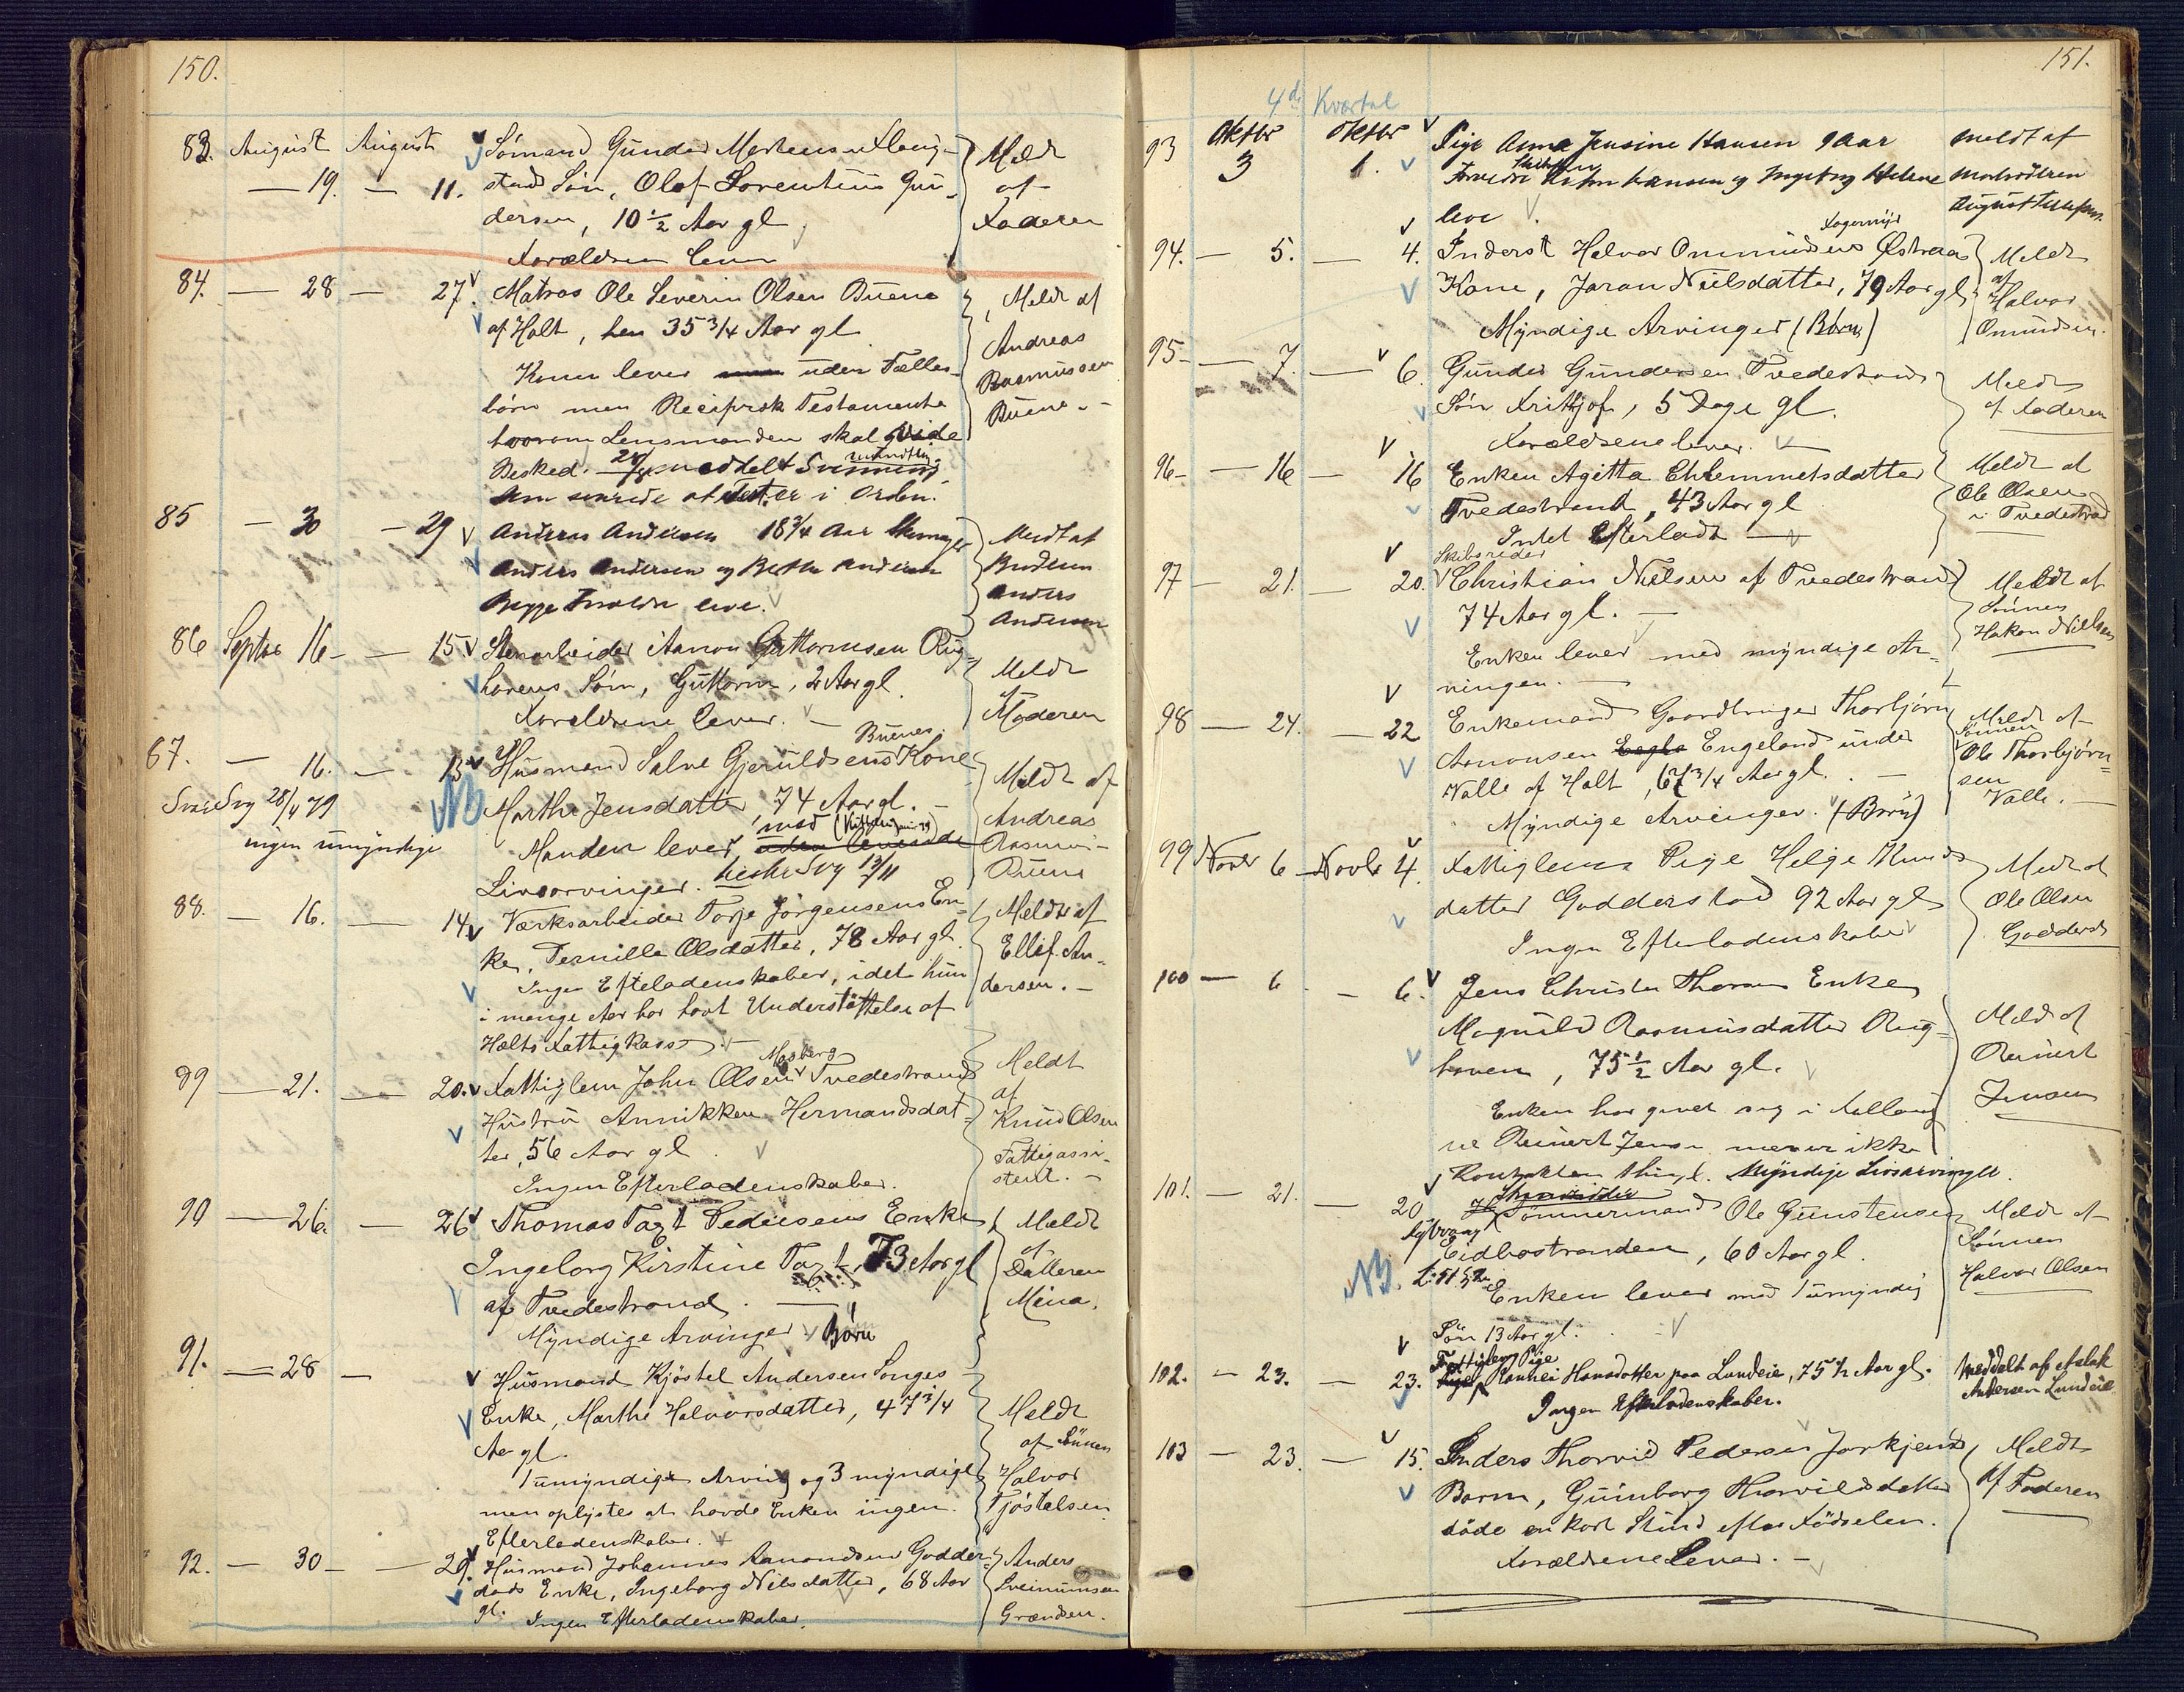 150.
83. August August Sömand Gunder Mortensen Flaug- Meldt
— 19. — 11. stads Sön, Olaf Lorentius Gun- af
dersen, 10 1/2 Aar gl Faderen
Forældrene lever
84. — 28 — 27. Matros Ole Severin Olsen Buene Meldt af
af Holt, hen 35 3/4 Aar gl Andreas
Konen lever uden Fælles- Rasmussen
börn men Reciprok Testamente Buene.
hvorom Lensmanden skal vide
Besked. meddelt mundtlig
som svarede at Test. er i Orden.
85 — 30 — 29 Anders Andersen 18 3/4 Aar Meldt af
Anders Andersen og Berthe Andersen Broderen
Begge Forældre leve. Anders
Andersen
86 Septbr 16 — — 15 Stenarbeider Aanon Guttormsen Rug- Meldt
havens Sön, Guttorm, 2 Aar gl. af
Forældrene lever. — Moderen
87. — 16. — 13 Husmand Salve Gjeruldsens Buenes Kone Meldt af
Marthe Jensdatter 74 Aar gl. — Andreas
Svar Svg 28/4 79
ingen umyndige
NB
Manden lever med uden levende Rasmus-
Livsarvinger. Svg 13/11 Buene
88. — 16. — 14. Værksarbeider Torje Jörgensens En- Meldt af
ke, Pernille Olsdatter, 78 Aar gl. Ellef An-
Ingen Efteladenskaber, idet hun dersen. —
i mange Aar har havt Understöttelse af
Holts Fattigkasse. —
89 — 21. — 20. Fattiglem John Olsen Mosberg Tvedestrand Meldt
Hustru Annikken Hermandsdat- af
ter, 56 Aar gl. Knud Olsen
Ingen Efterladenskaber. Fattigassi-
stent. —
90 — 26. — 26 Thomas Fagt Pedersens Enke Meldt
Ingeborg Kirstine Fagt, 73 Aar gl af
af Tvedestrand. — Datteren
Myndige Arvinger Börn Mina.
91. — 28 — Husmand Kjöstel Andersen Songes
Enke, Marthe Halvorsdatter, 47 3/4 Meldt
Aar gl. af Sönen
1 umyndig Arving og 3 myndige Halvor
men oplystes at havde Enken ingen Tjöstelsen
Efterladenskaber.
92. — 30 — — 29. Husmand Johannes Aanondsen Godder- Anders
stads Enke, Ingeborg Nilsdatter, 68 Aar Sveinumsen
gl. Ingen Efterladenskaber. Grændsen.
151.
4de Kvartal
93 Oktbr Oktbr Pige Anna Jensine Hansen 9 Aar meldt af
3 1. Forældre Hansen og Ingeborg Helene Morbroderen
leve August
94. — 5. — 4. Inderst Halvor Ommundsens Østeraa Meldt
Kone, Jaran Nielsdatter, 79 Aar gl af
Myndige Arvinger (Börn) Halvor
Omundsen.
95 — 7. — 6. Gunder Gundersen Tvedestrands Meldt
Sön Fritjof, 5 Dage gl. af Faderen
Forældrene lever.
96 — 16 — 16 Enken Agitta Chlemmetsdatter Meldt af
Tvedestrand, 43 Aar gl Ole Olsen
Intet Efterladt — i Tvedestrand
97 — 21. — 20. Skibsreder Christian Nielsen af Tvedestrand Meldt af
74 Aar gl. — Sönnen
Enken lever med myndige Ar- Hakon Nielsen
vinger. —
98 — 24. — 22 Enkemand Gaardbruger Thorbjörn Meldt af
Aanonsen Engeland under Sönnen
Valle af Holt, 67 3/4 Aar gl. — Ole Thorbjörn-
Myndige Arvinger. (Börn) sen
Valle. —
99 Novbr 6 — Novbr 4. Fattiglem Pige Helge Knuds- Meldt af
datter Godderstad 92 Aar gl Ole Olsen
Ingen Efterladenskaber Godderstd
100 — 6 — 6. Jens Christen Thorsens Enke
Magnild Rasmusdatter Rug- Meldt af
haven, 75 1/2 Aar gl. Reinert
Enken har givet sig i Fællig Jensen
ved Reinert Jensen men er ikke
Kontrakten thingl. Myndige Livsarvinger.
101. — 21. — 20 Tömmermand Ole Gunstensen Meldt af
Eidbostranden, 60 Aar gl. Sönnen
NB. Enken lever med 1 umyndig Halvor Olsen
Sön 13 Aar gl.
102. — 23. — 23. Fattiglem Pige Rannei Hansdatter paa Lundeie, 75 1/2 Aar gl. Meddelt af Aslak
Ingen Efterladenskaber. Andersen Lundeie
103 — 23. — 15. Anders Thorvid Pedersen Jorkjends Meldt
Barn, Gunborg Thorvildsdatter af Faderen
döde en kort Stund efter Födselen.
Forældrene Lever. —